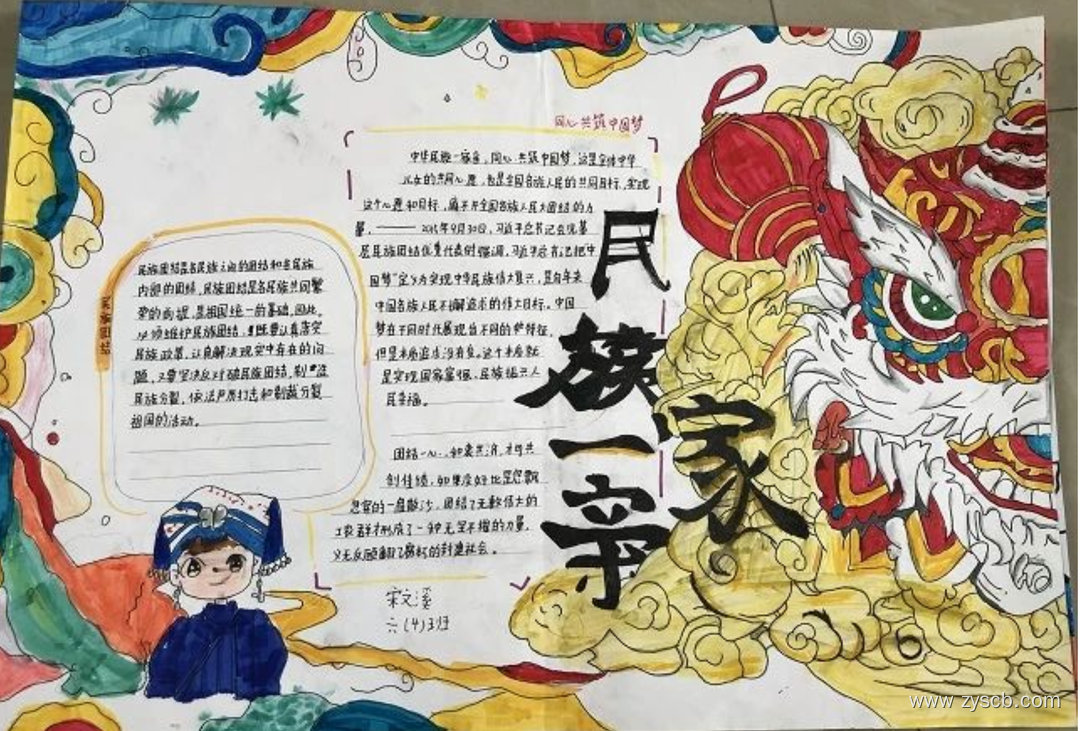 同心共筑中国梦
中华民族一家亲，同心共筑中国梦，这是全体中华
儿女的共同心愿，也是全国各族人民的共同目标，实现
这个心愿和目标，离不开全国各族人民大团结的力
量，——2015年9月30日，习近平总书记会见基
层民族团结优秀代表时强调，习近平总书记把“中
国梦”定义为实现中华民族伟大复兴，是百年来
中国各族人民不懈追求的伟大目标。中国
梦在不同时代展现出不同的特征，
但是本质追求没有变。这个本质就
是实现国家富强、民族振兴人
民幸福。
团结一心，和衷共济，才可共
创佳绩，如果没好比是您飘
忽寂的一座散沙，团结了无数伟大的
工农群才形成了一种无坚不摧的力量，
义无反顾翻了腐朽的封建社会。
民族团结
民族团结是各民族之间的团结和各民族
内部的团结，民族团结是各民族共同繁
荣的前提，是祖国统一的基础，因此，
必须维护民族团结，既要认真落实
民族政策，认真解决现实中存在的问
题，又要坚决反对破坏民族团结，制造
民族分裂，依法严厉打击和制裁分裂
祖国的活动。
民族一家亲
家
宋文溪
六（4）班
www.zyscb.com